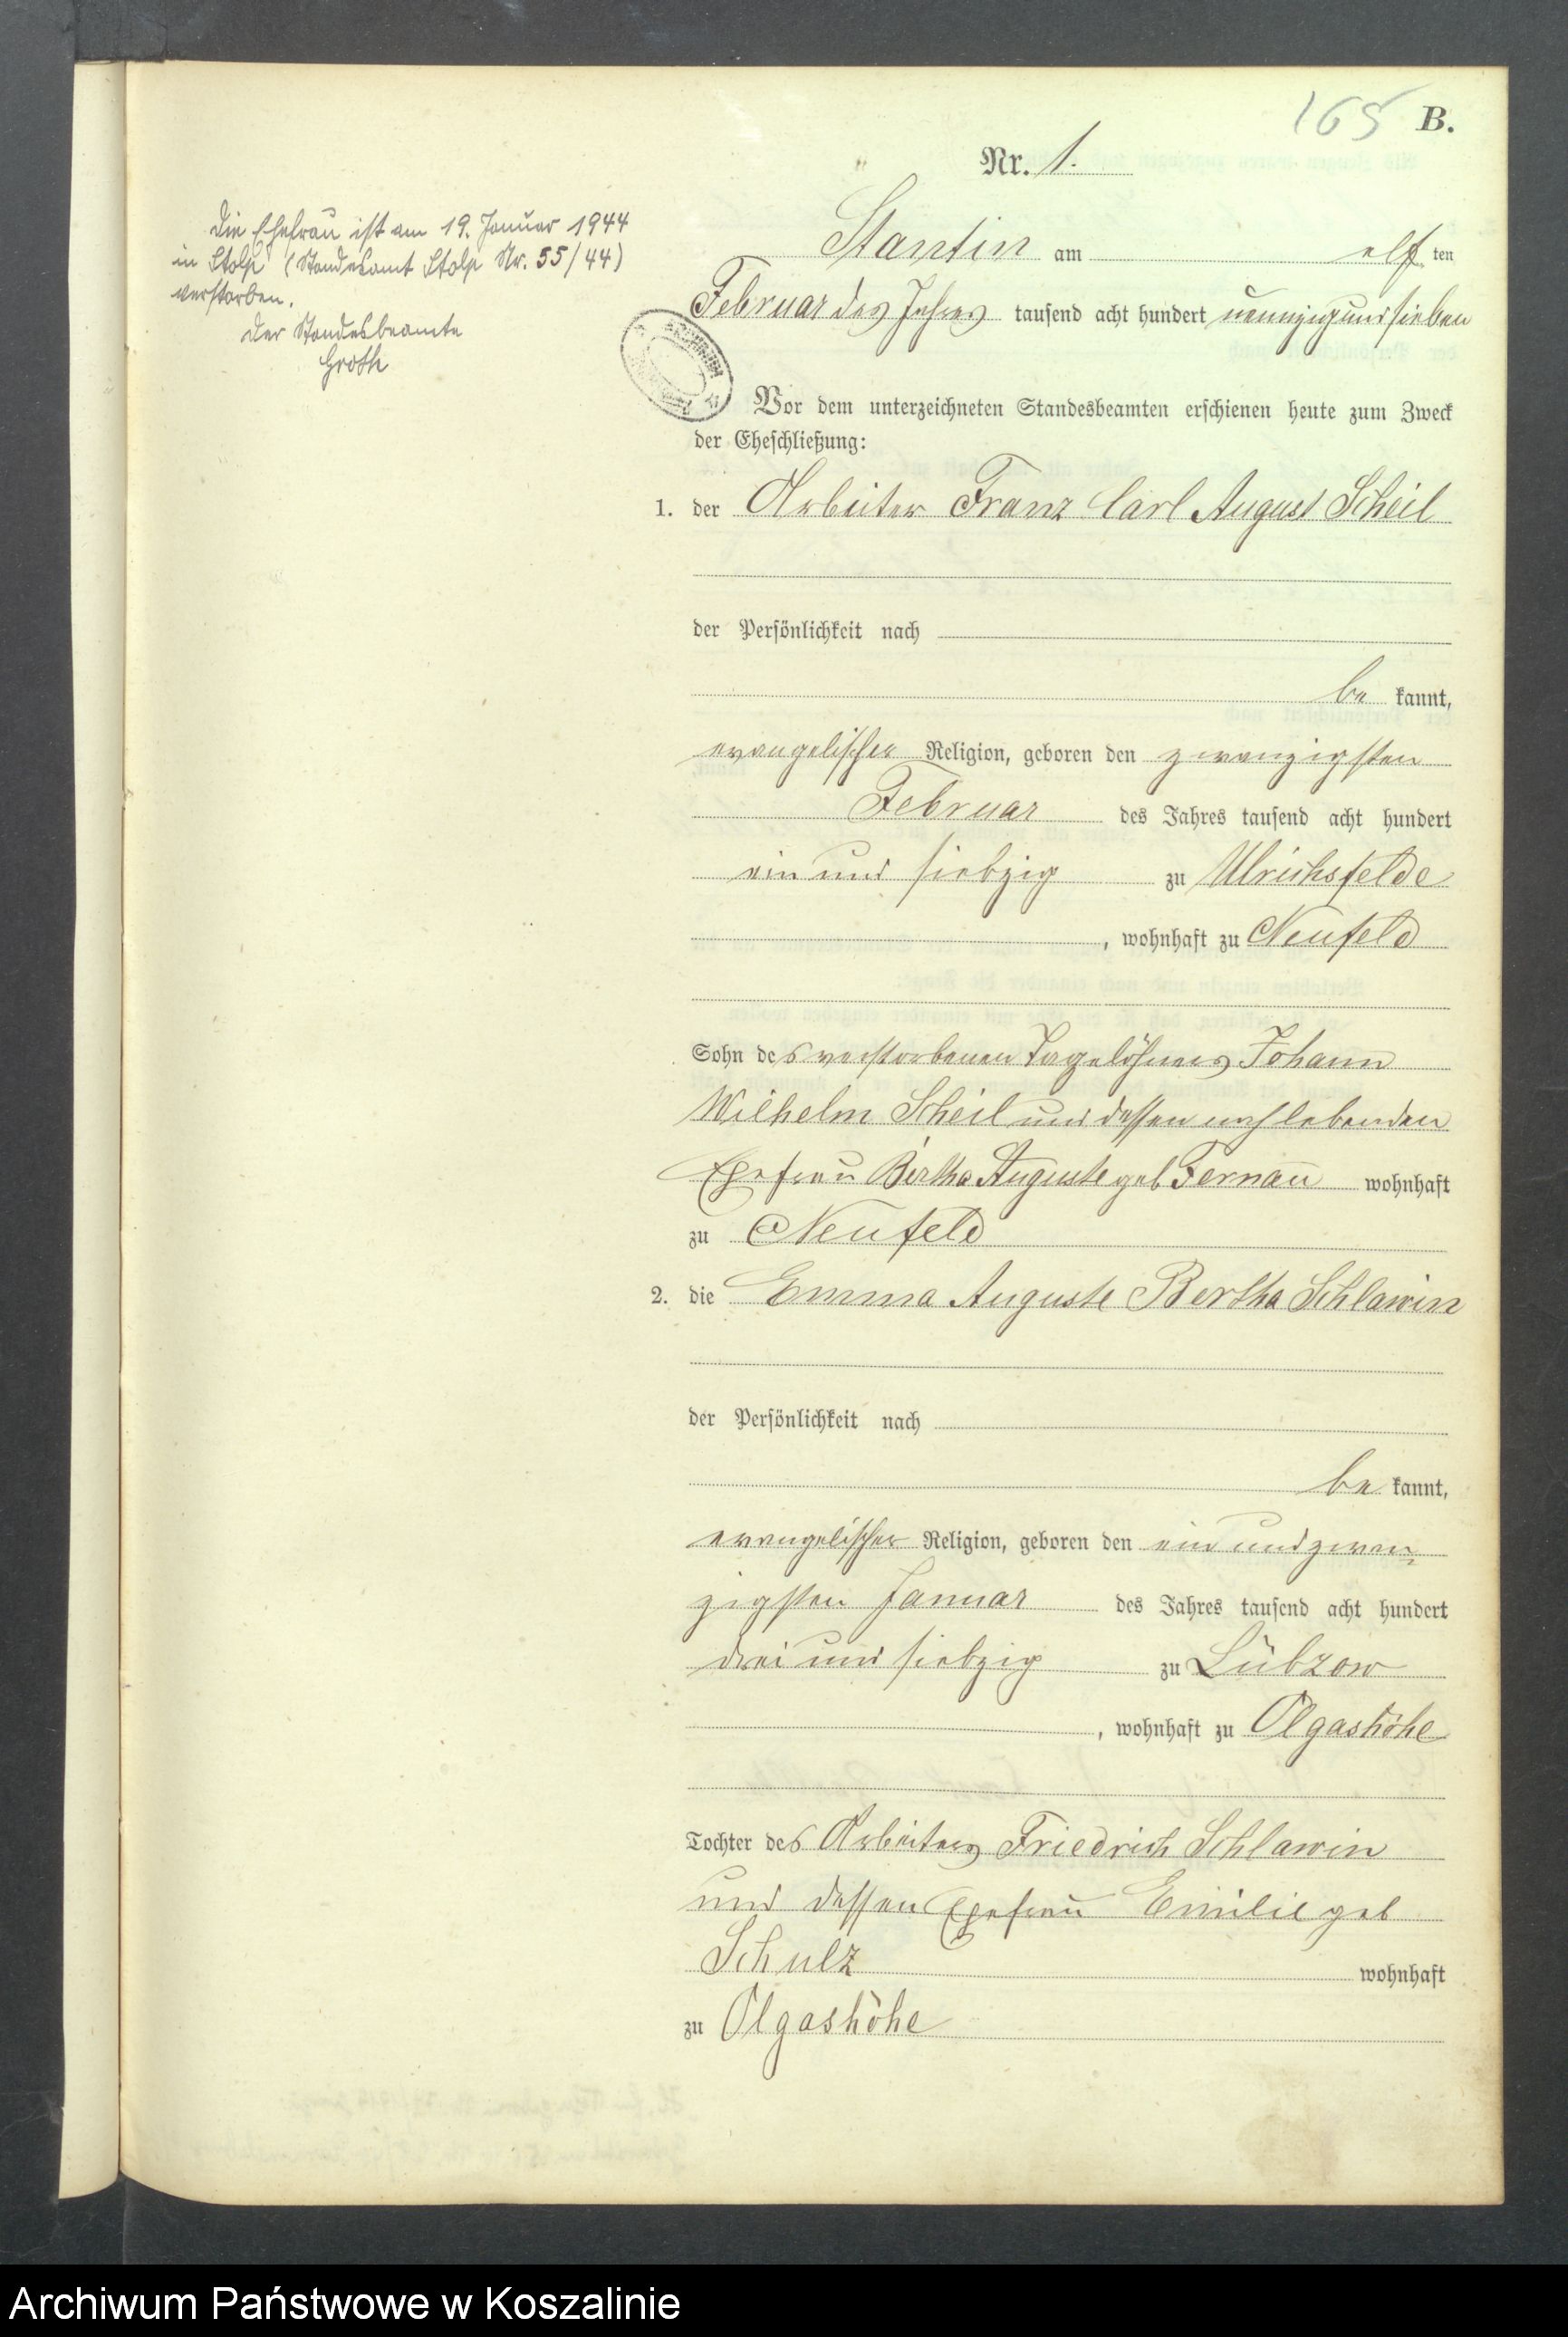 165 B.
Nr. 1.
Die Ehefrau ist am 19. Januar 1944
in Stolp (Standesamt Stolp Nr. 55/44)
verstorben.
Der Standesbeamte
Groth
Stantin am elf ten
Februar des Jahres tausend acht hundert neunzig und sieben
Vor dem unterzeichneten Standesbeamten erschienen heute zum Zweck
der Eheschließung:
1. der Arbeiter Franz Carl August Scheil
der Persönlichkeit nach
be kannt,
evangelischer Religion, geboren den zwanzigsten
Februar des Jahres tausend acht hundert
ein und siebzig zu Ulrichsfelde
, wohnhaft zu Neufeld
Sohn des verstorbenen Tagelöhners Johann
Wilhelm Scheil und dessen noch lebenden
Ehefrau Bertha Auguste geb Fernau wohnhaft
zu Neufeld
2. die Emma Auguste Bertha Schlawin
der Persönlichkeit nach
be kannt,
evangelischer Religion, geboren den ein und zwan=
zigsten Januar des Jahres tausend acht hundert
drei und siebzig zu Lübzow
, wohnhaft zu Olgashöhe
Tochter des Arbeiters Friedrich Schlawin
und dessen Ehefrau Emilie geb
Schulz wohnhaft
zu Olgashöhe
Archiwum Państwowe w Koszalinie